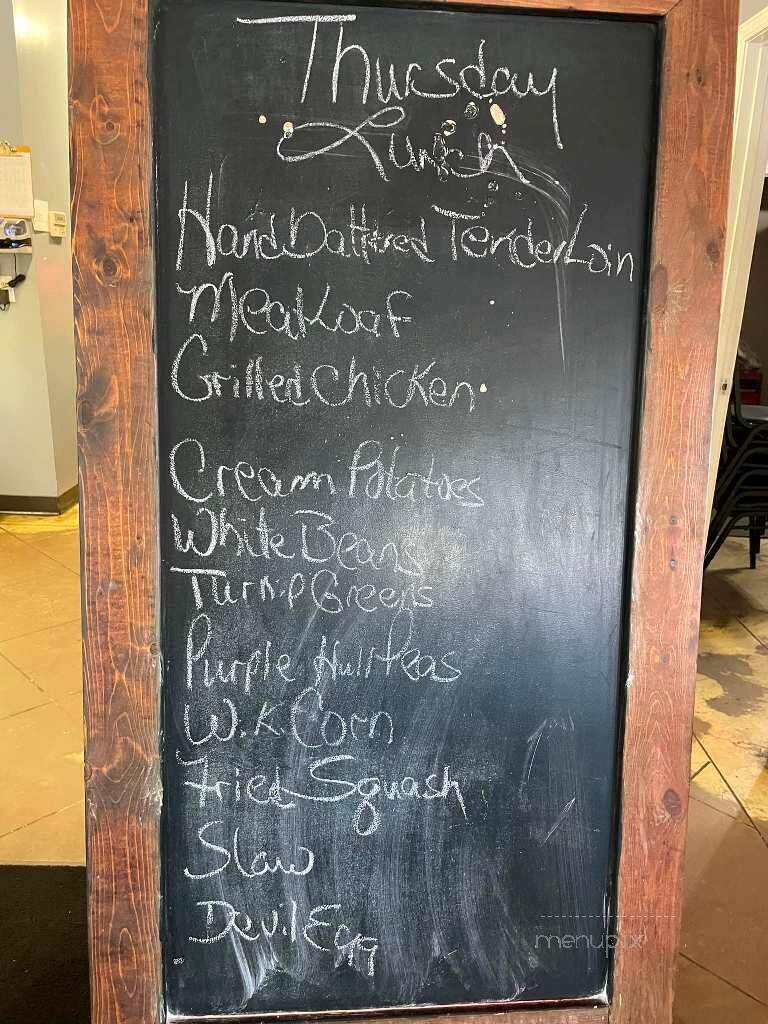 Thursday
Lunch
Hand Battered TenderLoin
MeatLoaf
Grilled Chicken
Cream Potatoes
White Beans
Turnip Greens
Purple Hull Peas
W.K. Corn
Fried Squash
Slaw
Devil Egg
menupix